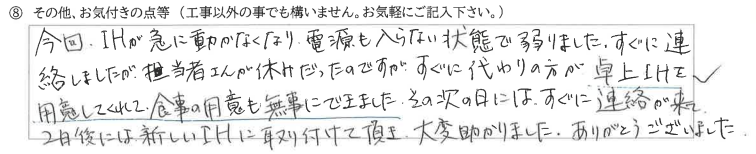 ⑧ その他、お気付きの点等（工事以外の事でも構いません。お気軽にご記入下さい。）
今回、IHが急に動かなくなり、電源も入らない状態で弱りました。すぐに連
絡しましたが、担当者さんが休みだったのですが、すぐに代わりの方が、卓上IHを
用意してくれて、食事の用意も無事にできました。その次の日には、すぐに連絡が来て
2日後には、新しいIHに取り付けて頂き、大変助かりました。ありがとうございました。